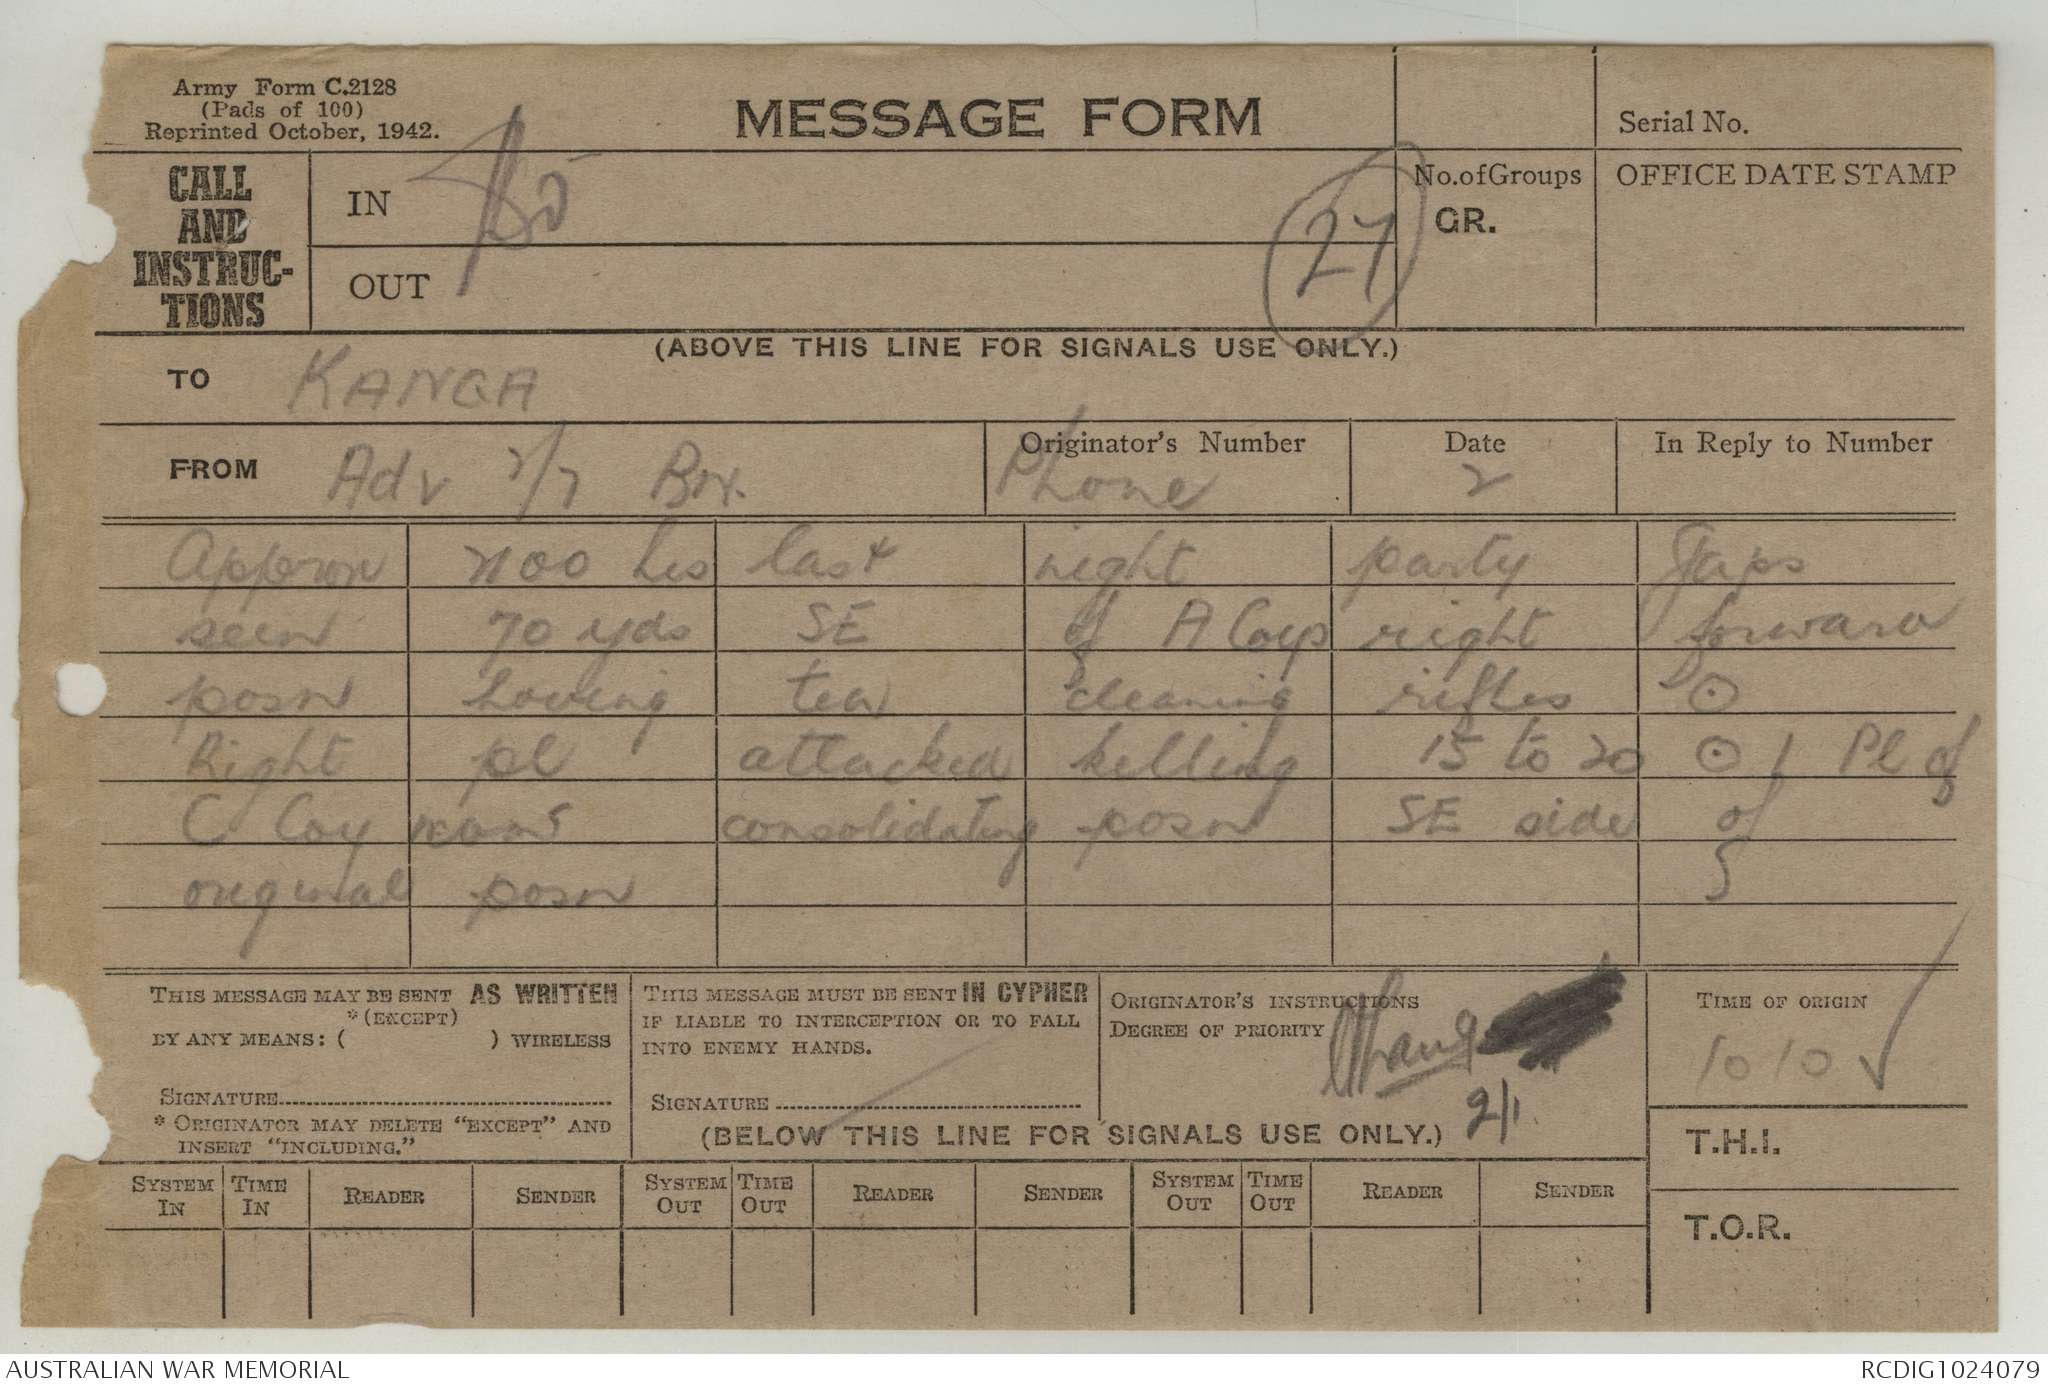 Army Form C.2128
(Pads of 100)
Reprinted October, 1942.
MESSAGE FORM
Serial No.
CALL AND INSTRUC-TIONS
IN
OUT
27
No. of Groups
GR.
OFFICE DATE STAMP
(ABOVE THIS LINE FOR SIGNALS USE ONLY.)
TO KANGA
FROM Adv 2/7 Bn.
Originator's Number Phone
Date 2
In Reply to Number
Approx 2100 hrs last night party Japs
seen 70 yds SE of A Coys right forward
posn having tea & cleaning rifles ⊙
Right pl attacked killing 15 to 20 ⊙ 1 Pl of
C Coy consolidating posn SE side of
original posn
THIS MESSAGE MAY BE SENT AS WRITTEN
*(EXCEPT)
BY ANY MEANS: ( ) WIRELESS
SIGNATURE
* ORIGINATOR MAY DELETE "EXCEPT" AND
INSERT "INCLUDING."
THIS MESSAGE MUST BE SENT IN CYPHER
IF LIABLE TO INTERCEPTION OR TO FALL
INTO ENEMY HANDS.
SIGNATURE
ORIGINATOR'S INSTRUCTIONS
DEGREE OF PRIORITY
TIME OF ORIGIN
1010 ✓
(BELOW THIS LINE FOR SIGNALS USE ONLY.)
T.H.I.
T.O.R.
SYSTEM IN TIME IN READER SENDER SYSTEM OUT TIME OUT READER SENDER SYSTEM OUT TIME OUT READER SENDER
AUSTRALIAN WAR MEMORIAL
RCDIG1024079